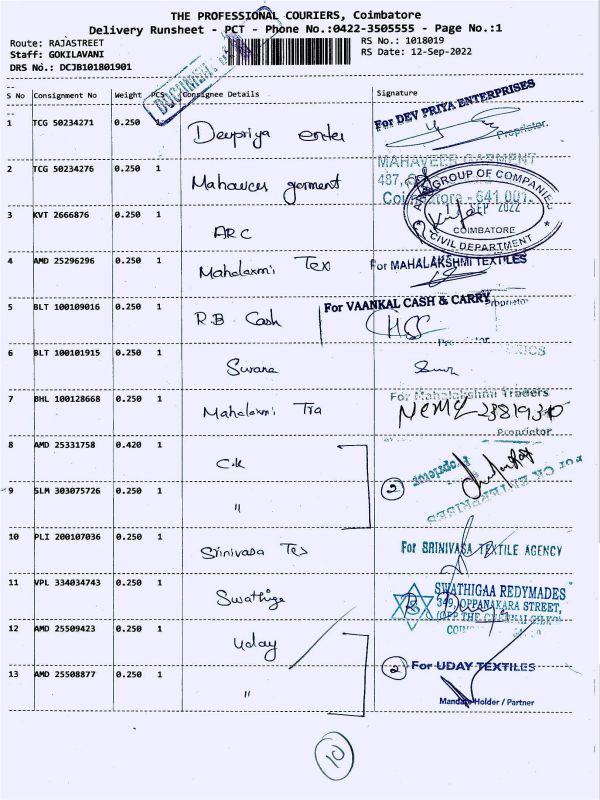 THE PROFESSIONAL COURIERS, Coimbatore
Delivery Runsheet - PCT - Phone No.:0422-3505555 - Page No.:1
Route: RAJASTREET RS No.: 1018019
Staff: GOKILAVANI RS Date: 12-Sep-2022
DRS No.: DCJB101801901
S No Consignment No Weight PCS Consignee Details Signature
1 TCG 50234271 0.250 Devpriya enter For DEV PRIYA ENTERPRISES
Proprietor.
2 TCG 50234276 0.250 1 Mahaveer garment MAHAVEER GARMENT
487,
Coimbatore - 641 001.
3 KVT 2666876 0.250 1 ARC GROUP OF COMPANIES
SEP 2022
COIMBATORE
CIVIL DEPARTMENT
4 AMD 25296296 0.250 1 Mahalaxmi Tex For MAHALAKSHMI TEXTILES
Proprietor
5 BLT 100109016 0.250 1 R.B. Cash For VAANKAL CASH & CARRY
6 BLT 100101915 0.250 1 Suvana
7 BHL 100128668 0.250 1 Mahalaxmi Tra For Mahalakshmi Traders
Proprietor
8 AMD 25331758 0.420 1 C.K For CK ENTERPRISES
Proprietor
9 SLM 303075726 0.250 1 " 2
10 PLI 200107036 0.250 1 Srinivasa Tex For SRINIVASA TEXTILE AGENCY
11 VPL 334034743 0.250 1 Swathiga SWATHIGAA REDYMADES
349, OPPANAKARA STREET,
(OPP THE CHENNAI SILKS)
12 AMD 25509423 0.250 1 Uday
13 AMD 25508877 0.250 1 " 2 For UDAY TEXTILES
Mandate Holder / Partner
10